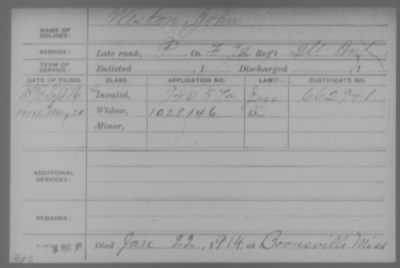 Weston John
NAME OF SOLDIER:
SERVICE: Late rank, P Co. F, 72 Reg't Ill Inf
TERM OF SERVICE: Enlisted , 1 Discharged , 1
DATE OF FILING. CLASS. APPLICATION NO. LAW. CERTIFICATE NO.
Invalid, 740572 662971
1914 May 28 Widow, 1028146
Minor,
ADDITIONAL SERVICES:
REMARKS:
Died Jan 22, 1914, at Boonesville Miss